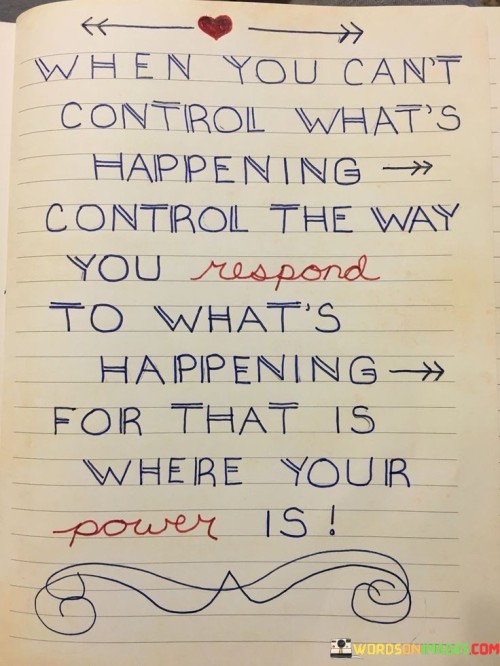 WHEN YOU CAN'T
CONTROL WHAT'S
HAPPENING →»
CONTROL THE WAY
YOU respond
TO WHAT'S
HAPPENING →»
FOR THAT IS
WHERE YOUR
power IS!
WORDSONIMAGES.COM